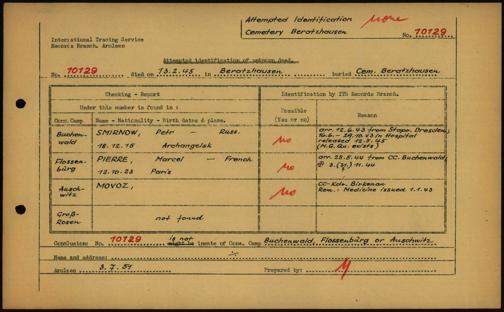 Attempted Identification none
Cemetery Beratzhausen
No. 10129
International Tracing Service
Records Branch, Arolsen
Attempted identification of unknown dead.
No. 10129 died on 13.2.45 in Beratzhausen buried Cem. Beratzhausen
Checking - Report
Identification by ITS Records Branch.
Under this number is found in :
Possible
(Yes or no)
Reason
Conc.Camp
Name - Nationality - Birth dates & place.
Buchen-
wald
SMIRNOW, Petr - Russ.
18.12.15 Archangelsk
no
arr. 12.6.43 from Stapo. Dresden,
29.10.43 in Hospital
released 12.5.45
(M.G.Qu. exists)
Flossen-
bürg
PIERRE, Marcel - French
12.10.23 Paris
no
arr. 25.5.44 from CC. Buchenwald,
11.44
Ausch-
witz
MOVOZ,
no
CC-Kdo. Birkenau
Rem.: Medicine issued 1.1.43
Groß-
Rosen
not found
Conclusion: No. 10129 is not might be inmate of Conc. Camp Buchenwald, Flossenbürg or Auschwitz.
Name and address:
Arolsen 3.7.51 Prepared by: